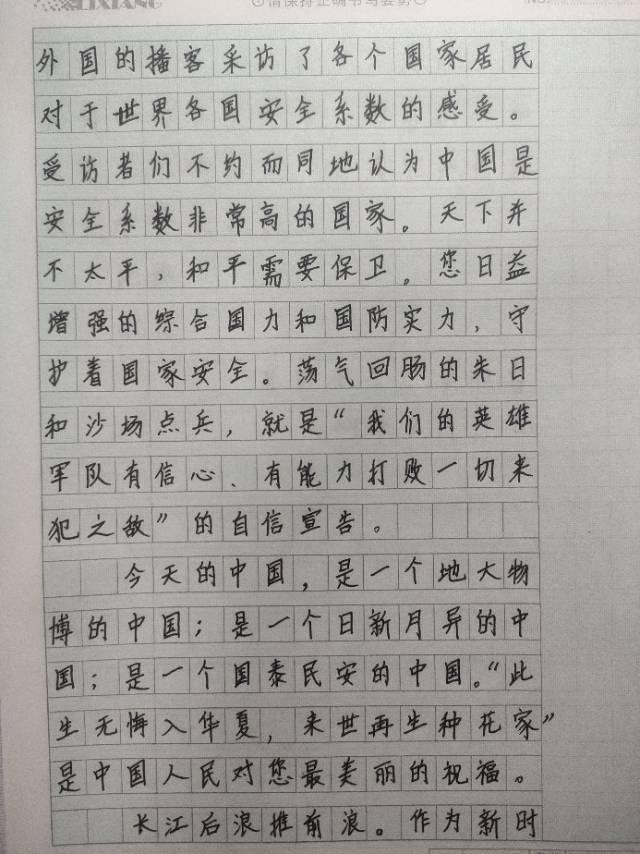 LIXIANG ⊙请保持正确书写姿势⊙ NO.
外国的播客采访了各个国家居民
对于世界各国安全系数的感受。
受访者们不约而同地认为中国是
安全系数非常高的国家。天下并
不太平，和平需要保卫。您日益
增强的综合国力和国防实力，守
护着国家安全。荡气回肠的朱日
和沙场点兵，就是“我们的英雄
军队有信心、有能力打败一切来
犯之敌”的自信宣告。
今天的中国，是一个地大物
博的中国；是一个日新月异的中
国；是一个国泰民安的中国。“此
生无悔入华夏，来世再生种花家”
是中国人民对您最美丽的祝福。
长江后浪推前浪。作为新时